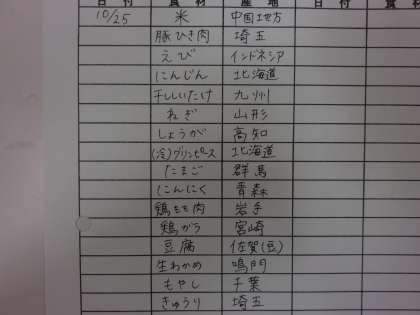 日付 食材 産地 日付 食材
10/25 米 中国地方
豚ひき肉 埼玉
えび インドネシア
にんじん 北海道
干ししいたけ 九州
ねぎ 山形
しょうが 高知
(冷)グリンピース 北海道
たまご 群馬
にんにく 青森
鶏もも肉 岩手
鶏がら 宮崎
豆腐 佐賀(豆)
生わかめ 鳴門
もやし 千葉
きゅうり 埼玉